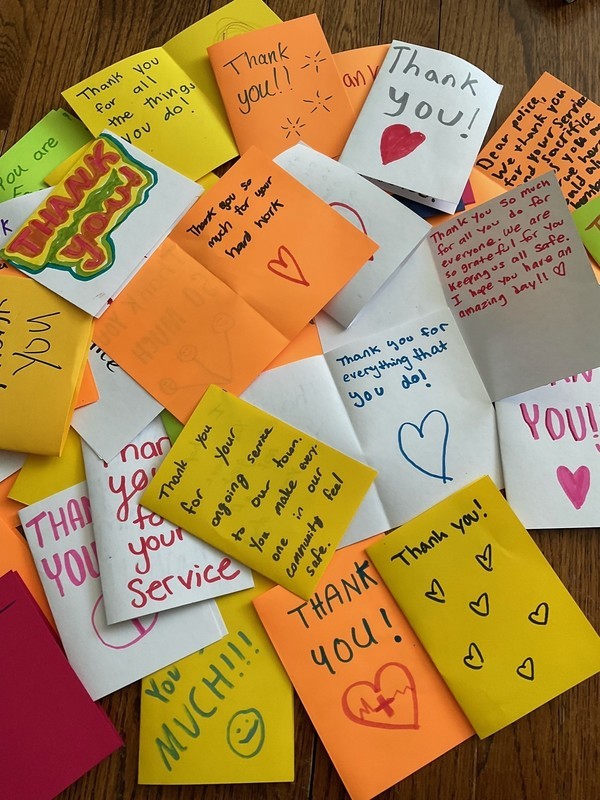 Thank you
for all
the things
you do!
Thank
you!!
Thank
you!
Dear police,
We thank you
for your Service
and Sacrifice
You are
THANK
YOU!
Thank you so
much for your
hard work
Thank you so much
for all you do for
everyone. We are
so grateful for you
keeping us all safe.
I hope you have an
amazing day!!
Thank you for
everything that
you do!
YOU!
Thank you
for your
ongoing service
to our town.
You make every-
one in our
community feel
safe.
Thank
you
for
your
Service
THAN
YOU
Thank you!
THANK
YOU!
YOU
MUCH!!!